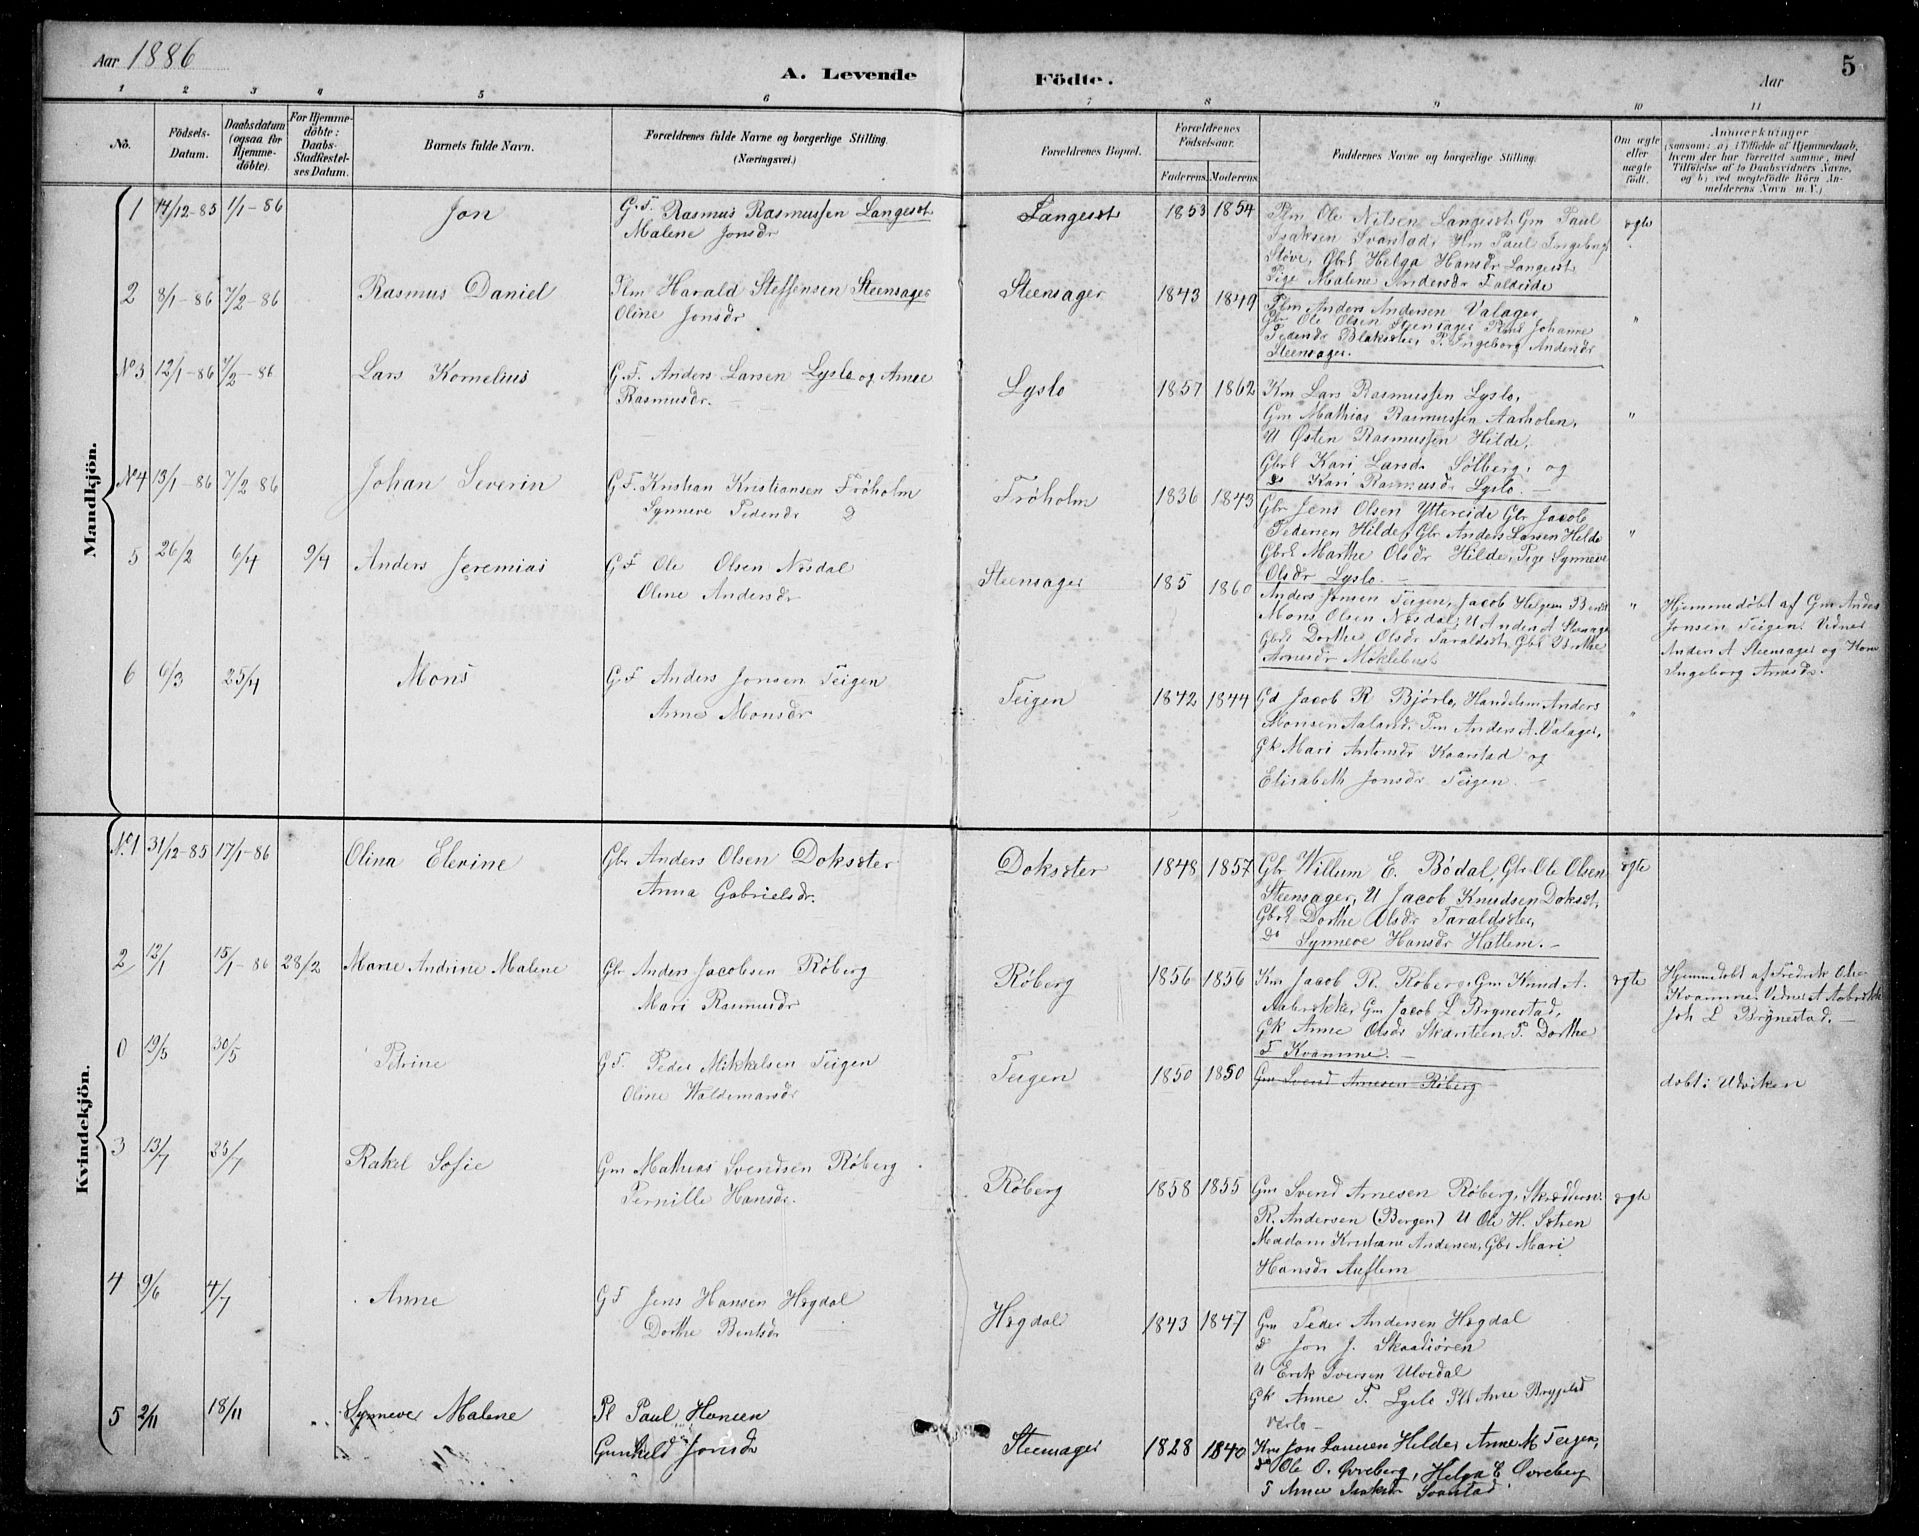 Aar 1886
A. Levende
Födte.
Aar
5
1 2 3 4 5 6 7 8 9 10 11
No.
Födsels-Datum.
Daabsdatum (ogsaa for Hjemme-döbte).
For Hjemme-döbte: Daabs-Stadfæstel-ses Datum.
Barnets fulde Navn.
Forældrenes fulde Navne og borgerlige Stilling. (Næringsvei.)
Forældrenes Bopæl.
Forældrenes Födselsaar.
Faderens. Moderens.
Faddernes Navne og borgerlige Stilling.
Om ægte eller uægte födt.
Anmærkninger
(saasom: a) i Tilfælde af Hjemmedaab, hvem der har forrettet samme, med Tilföielse af to Daabsvidners Navne, og b) ved uægtefödte Börn An-melderens Navn m. V.)
Mandkjön.
1 17/12-85 1/1-86 Jon
G.F. Rasmus Rasmussen Langesæt
Malene Jonsdr
Langesæt 1853 1854
Plm Ole Nilsen Langesæt Gm Paul
Isaksen Svarstad, Hm Paul Ingebrigt
Støve, Gbrk Helga Hansdr Langesæt
Pige Malene Andersdr Faldeide
ægte
2 8/1-86 7/2-86 Rasmus Daniel
Plm Harald Steffensen Steensager
Oline Jonsdr
Steensager 1843 1849
Plm Anders Andersen Valager,
Gbr Ole Olsen Steensager Plms Johanne
Pedersdr Blaksæter, P. Ingeborg Andersdr
Steensager.
"
No 3 12/1-86 7/2-86 Lars Kornelius
G.F. Anders Larsen Lyslo og Anne
Rasmusdr.
Lyslo 1857 1862
Km Lars Rasmussen Lyslo,
Gm Mathias Rasmussen Aarholen,
U Østen Rasmussen Hilde,
Gbrk Kari Larsd. Sølberg, og
do Kari Rasmusdr Lyslo.
"
No 4 13/1-86 7/2 86 Johan Severin
G.F. Kristian Kristiansen Frøholm
Synneve Pedersdr
Frøholm 1836 1843
Gbr Jens Olsen Yttereide Gbr Jacob
Pedersen Hilde, Gbr Anders Larsen Hilde
Gbrk Marthe Olsdr Hilde, Pige Synneve
Olsdr Lyslo.
"
5 26/2 6/4 9/4 Anders Jeremias
G F Ole Olsen Nesdal
Oline Andersdr
Steensager 185 1860
Anders Jonsen Teigen, Jacob Helgesen
Mons Olsen Nesdal, U Anders A Steensager
Gbrk Dorthe Olsdr Taraldset, Gbk Brithe
Arnesdr Møklebust
"
Hjemmedøbt af Gm Anders
Jonsen Teigen. Vidner
Anders A Steensager og Kone
Ingeborg Arnesdr.
6 6/3 25/4 Mons
G.F Anders Jonsen Teigen
Anne Monsdr
Teigen 1842 1844
Gd Jacob R Bjørlo, Handelsm Anders
Monsen Aaland, Pm Anders A. Valager,
Gk Mari Antonsdr Kaarstad og
Elisabeth Jonsdr Teigen.
"
Kvindekjön.
No 1 31/12-85 17/1-86 Olina Elevine
Gbr Anders Olsen Doksæter
Anna Gabrielsdr.
Doksæter 1848 1857
Gbr Willum E. Bødal, Gbr Ole Olsen
Steensager, U Jacob Knudsen Doksæt,
Gbrk Dorthe Olsdr Taraldsæter,
do Synneve Hansdr Hatlem.
ægte
2 12/1 15/1-86 28/2 Marie Andrine Malene
Gbr Anders Jacobsen Røberg
Mari Rasmusdr
Røberg 1856 1856
Km Jacob R. Røberg, Gm Knud A.
Aabrekke, Gm Jacob L Brynestad,
Gk Anne Olsdr Skarsteen, P. Dorthe
F Kvamme.
ægte
Hjemmedøbt af Fredrik Ols.
Kvamme. Vidner A Aabrekk
Joh L Brynestad.
0 19/3 30/5 Petrine
G.F. Peder Mikkelsen Teigen
Oline Waldemarsdr
Teigen 1850 1850
Gm Svend Arnesen Røberg
døbt i Utviken
3 13/7 25/7 Rakel Sofie
Gm Mathias Svendsen Røberg
Pernille Hansdr.
Røberg 1858 1855
Gm Svend Arnesen Røberg, Skrædderm.
R. Andersen (Bergen) U Ole H. Sætren
Madam Kristiane Andersen, Gbr Mari
Hansdr Auflem
ægte
4 9/6 4/7 Anne
G F Jens Hansen Hægdal
Dorthe Bentsdr
Hægdal 1843 1847
Gm Peder Andersen Hægdal
do Jon J. Skaadiøren
U Erik Iversen Ulvedal
Gk Anne P. Lyslo Pk Anne Brygfjeld
Verlo
5 2/11 18/11 Synneve Malene
Pl Paul Hansen
Gunhild Jonsdr
Steensager 1828 1840
Km Jon Larsen Hilde, Anne M Teigen,
do Ole O. Øvreberg, Helga E. Øvreberg
P Anne Isaksdr Svarstad